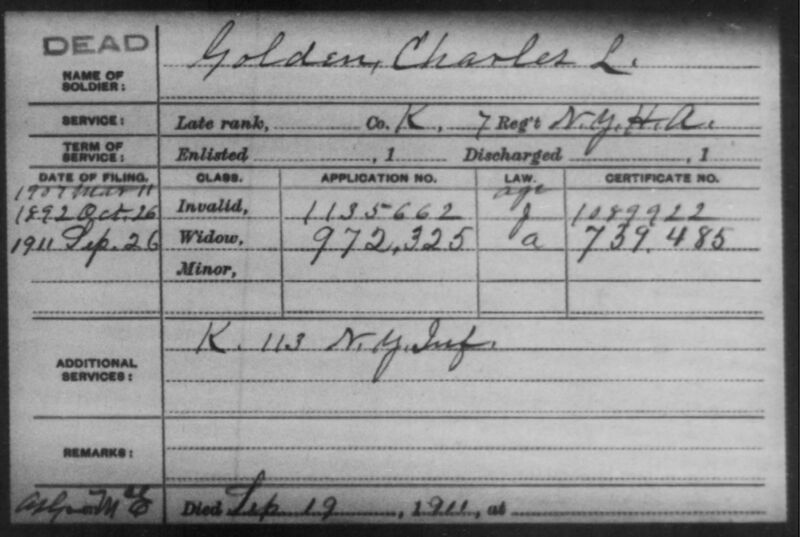 DEAD
Golden, Charles L.
NAME OF SOLDIER:
SERVICE: Late rank, Co. K, 7 Reg't N.Y.H.A.
TERM OF SERVICE: Enlisted , 1 Discharged , 1
DATE OF FILING. CLASS. APPLICATION NO. LAW. CERTIFICATE NO.
1907 Mar 11 age
1892 Oct. 26 Invalid, 1135662 J 1089922
1911 Sep. 26 Widow, 972,325 a 739.485
Minor,
ADDITIONAL SERVICES: K. 113 N.Y. Inf.
REMARKS:
Died Sep 19, 1911, at